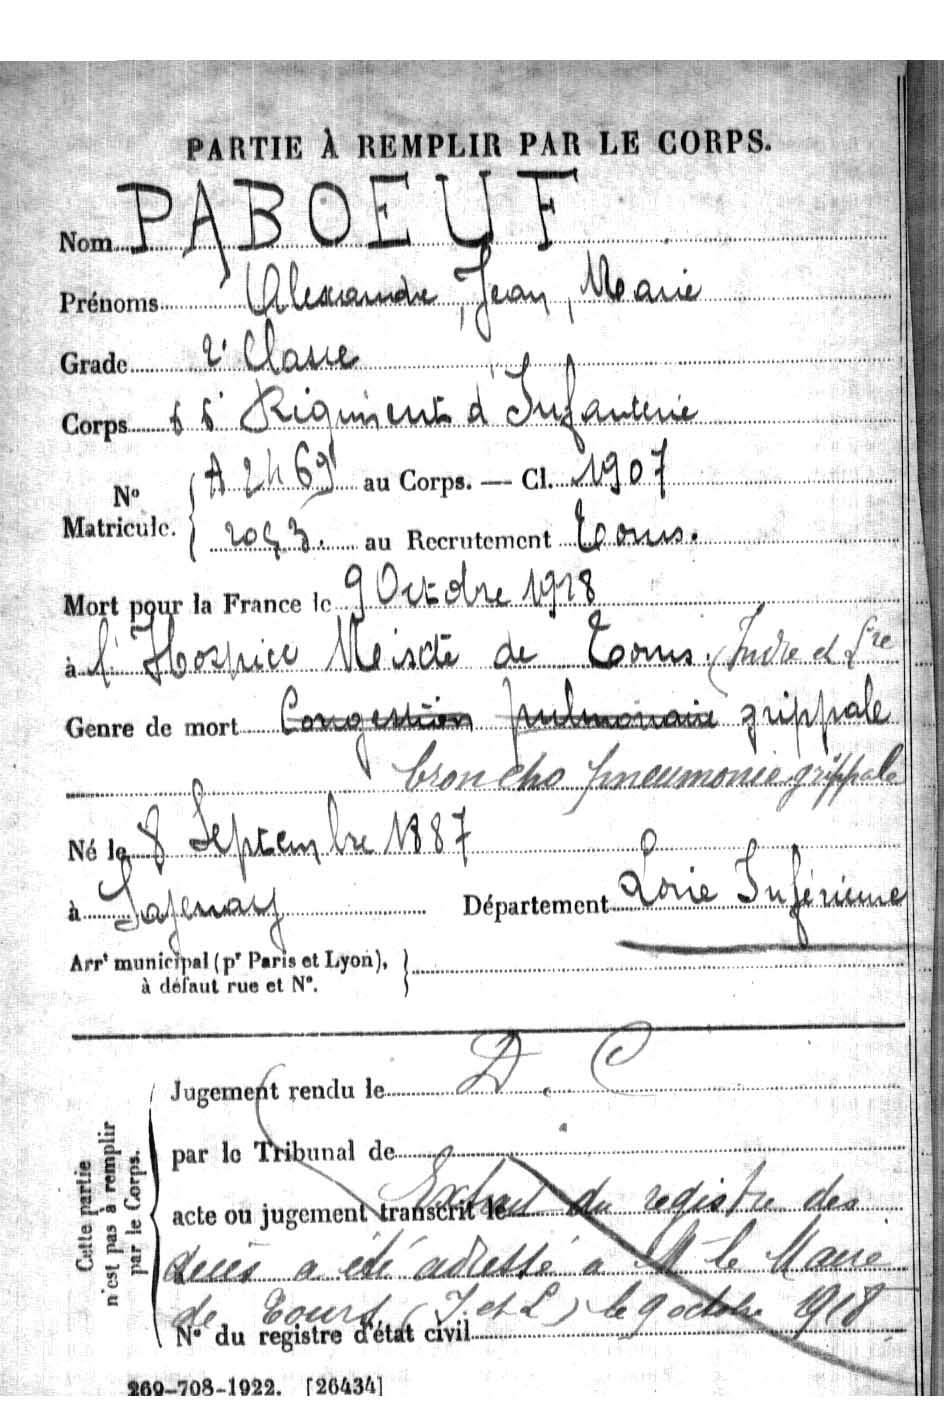 PARTIE À REMPLIR PAR LE CORPS.
Nom PABOEUF
Prénoms Alexandre, Jean, Marie
Grade 2e Classe
Corps 66e Régiment d'Infanterie
No Matricule. A 2469 au Corps. — Cl. 1907
2053. au Recrutement Tours.
Mort pour la France le 9 Octobre 1918
à l'Hospice Mixte de Tours. (Indre et Lre
Genre de mort Congestion pulmonaire grippale
broncho pneumonie grippale
Né le 8 Septembre 1887
à Savenay Département Loire Inférieure
Arrt municipal (pr Paris et Lyon),
à défaut rue et No.
Cette partie
n'est pas à remplir
par le Corps.
Jugement rendu le D. C
par le Tribunal de
Extrait du registre des
acte ou jugement transcrit le
décès a été adressé à Mr le Maire
de Tours (I. et L) le 9 octobre 1918
No du registre d'état civil
269-708-1922. [26434]